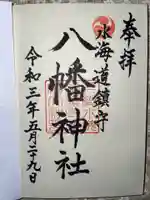 奉拝
水海道鎮守
八幡神社
令和三年五月二十九日